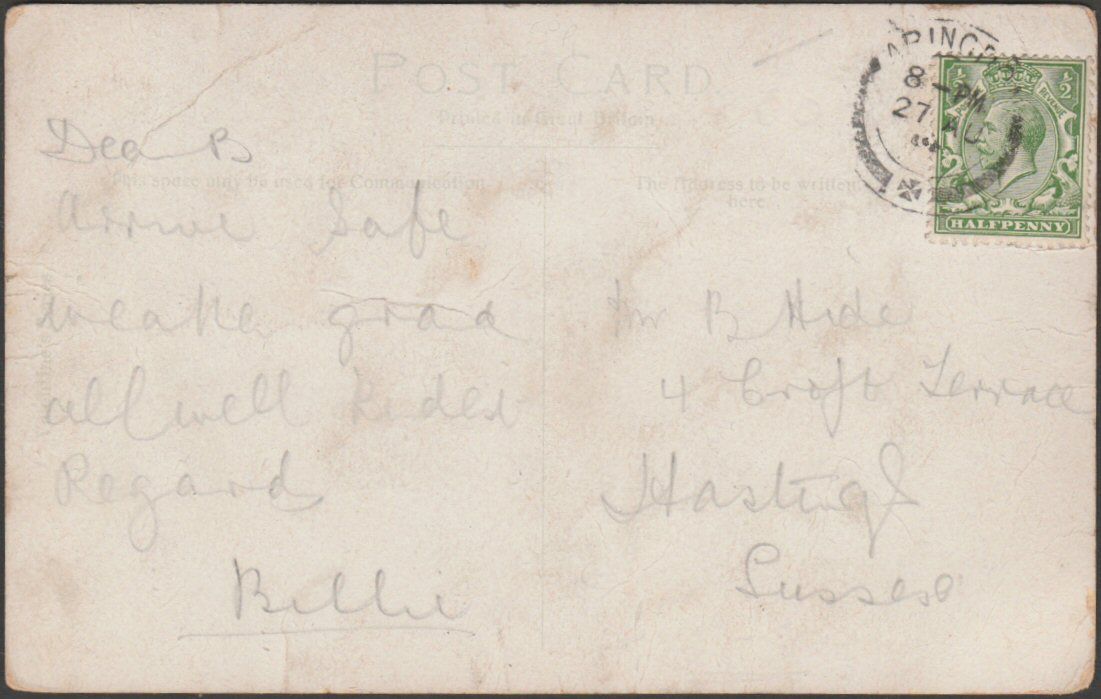 POST CARD
Printed in Great Britain
This space may be used for Communication
The Address to be written here.
8-PM
27 AU
½ ½
POSTAGE REVENUE
HALFPENNY
Dea B
arrive Safe
weathe grad
all well Kidest
Regard
Billie
B Hide
4 Croft Terrace
Hastings
Sussex